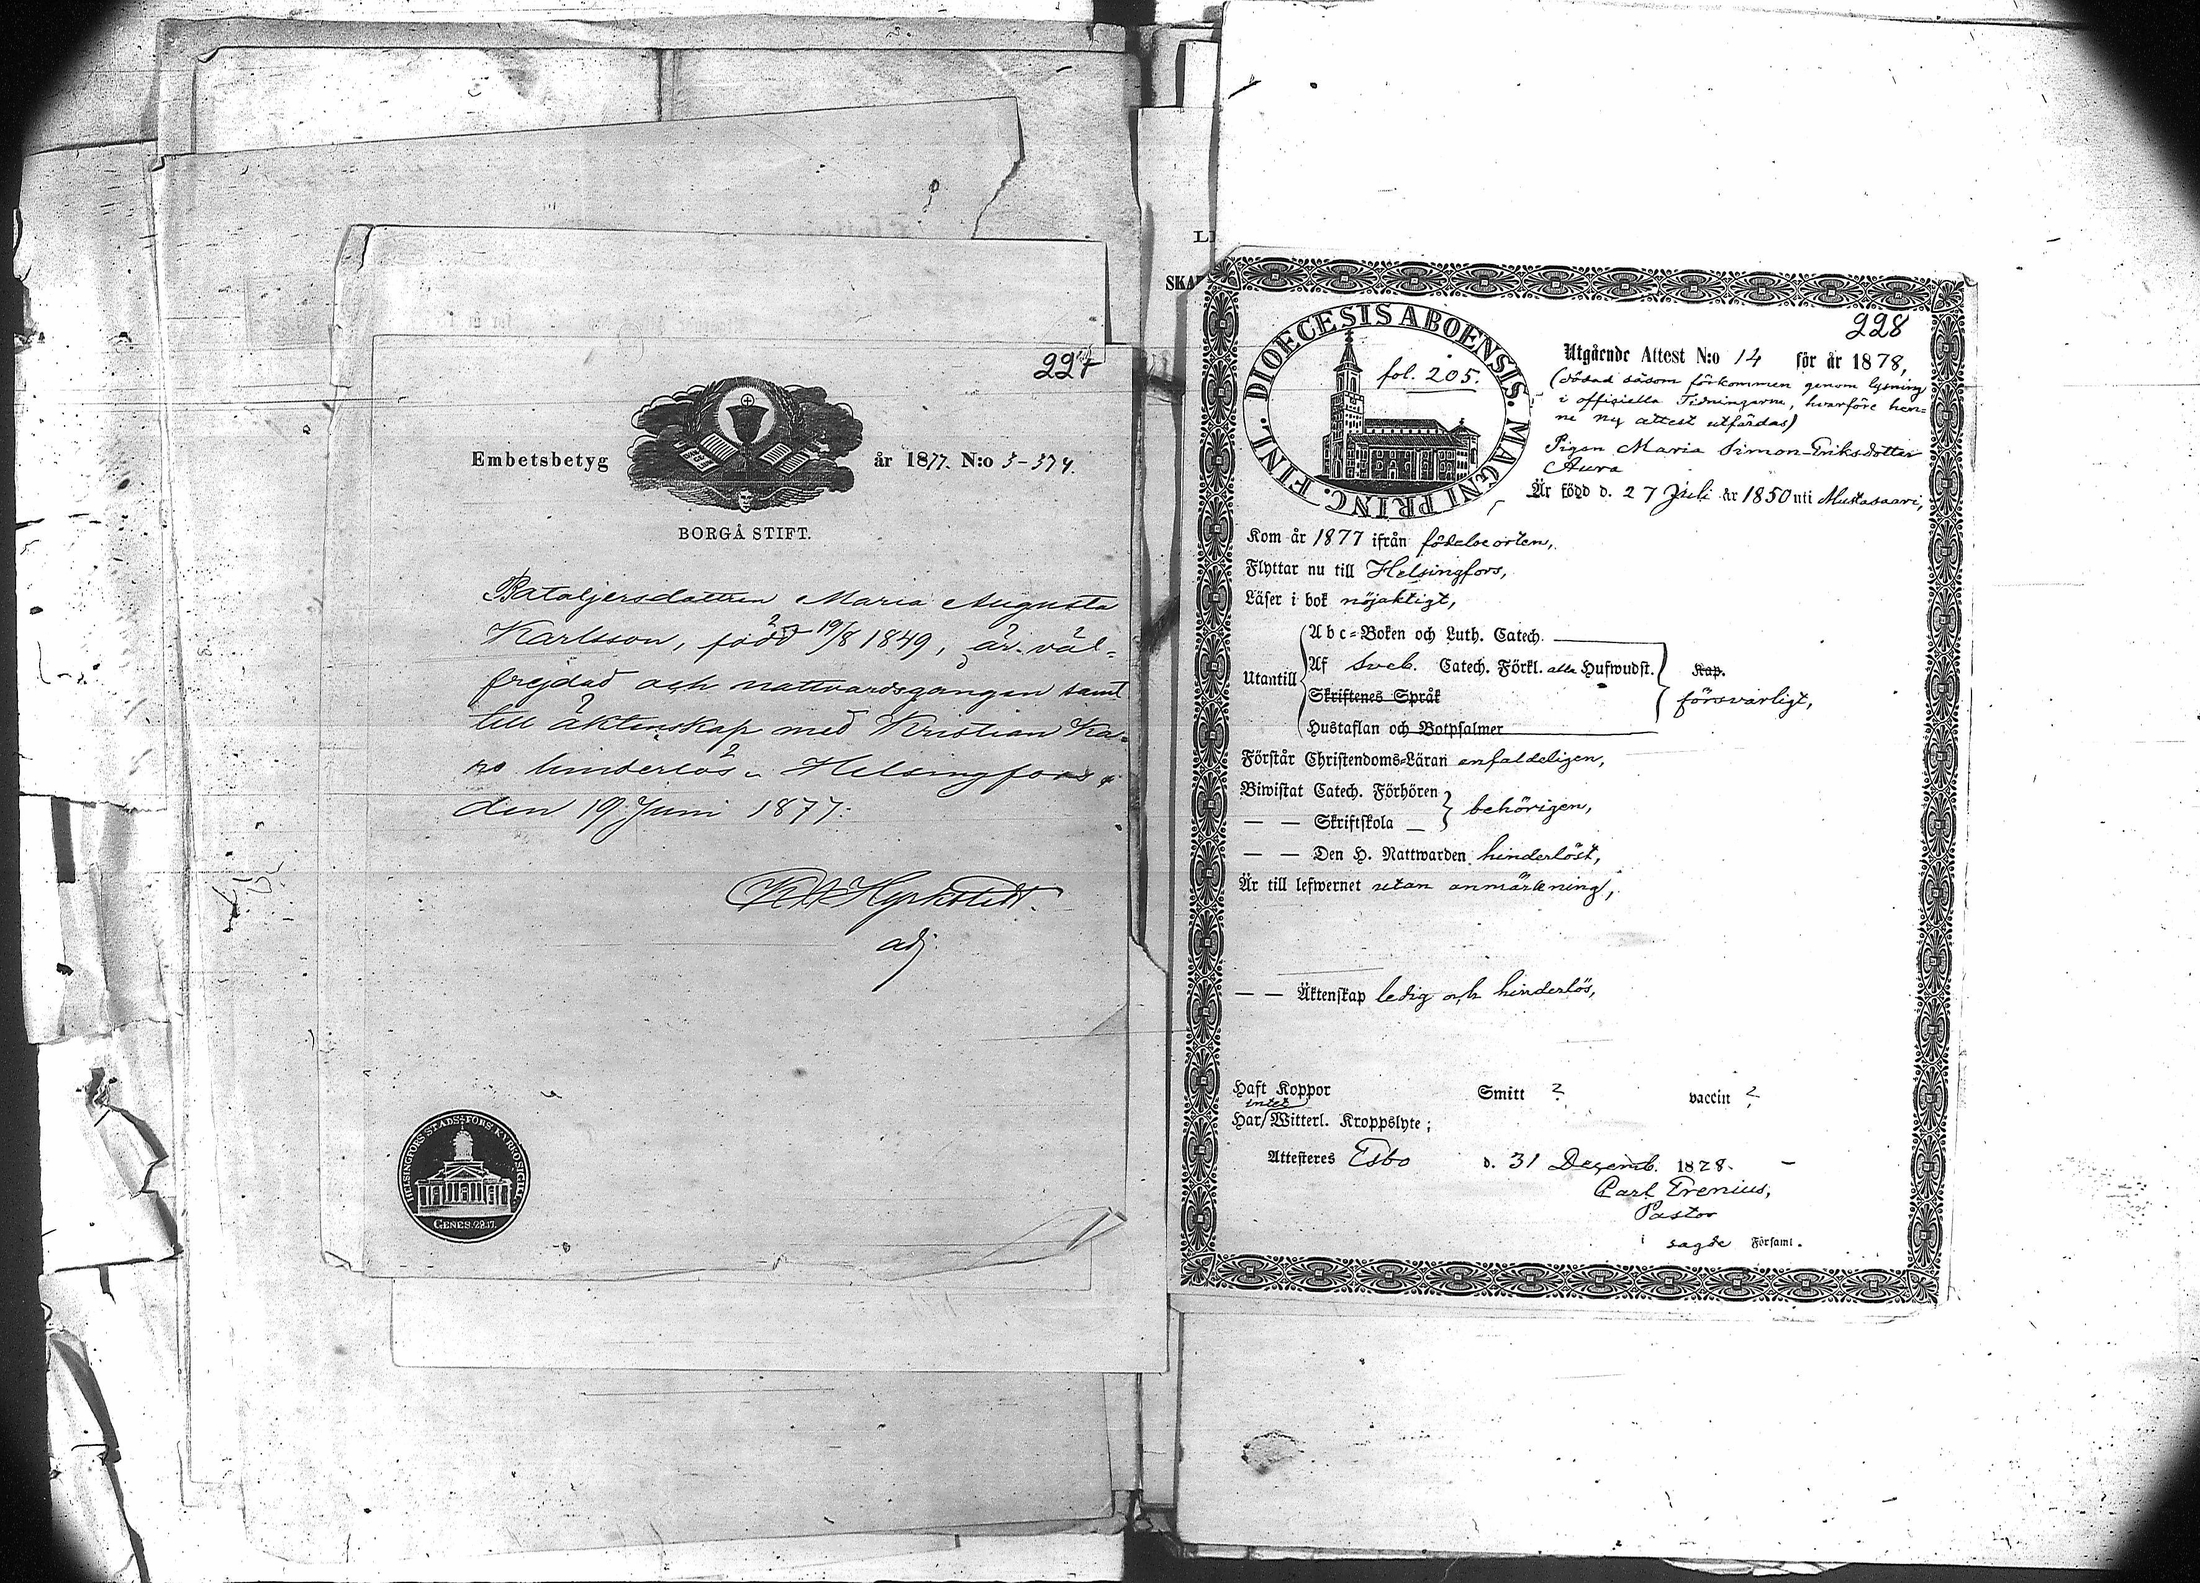 227
Embetsbetyg år 1877. N:o 3-374.
BORGÅ STIFT.
Maria Augusta
Karlsson, född 19/8 1849, är väl-
frejdad och nattvardsgången samt
till äktenskap med Kristian Ka-
ro hinderlös. Helsingfors
den 19 Juni 1877.
adj.
HELSINGFORS STADSFÖRS. KYRKO
GENES. 28.17.
LI
SKA
228
DIOECESIS ABOENSIS. MAGNI PRINC. FINL.
fol. 205.
Utgående Attest N:o 14 för år 1878,
(dödad såsom förkommen genom lysning
i officiella Tidningarne, hvarföre hen-
ne ny attest utfärdas)
Pigan Maria Simon-Eriksdotter
Aura
Är född d. 27 Juli år 1850 uti Mustasaari,
Kom år 1877 ifrån födelseorten,
Flyttar nu till Helsingfors,
Läser i bok nöjaktigt,
Utantill
Abc-Boken och Luth. Catech.
Af Sveb. Catech. Förkl. alla Hufwudst. Kap.
Skriftenes Språk
försvarligt,
Hustaflan och Botpsalmer
Förstår Christendoms-Läran enfaldeligen,
Biwistat Catech. Förhören
behörigen,
— — Skriftskola —
— — Den H. Nattwarden hinderlöst,
Är till lefwernet utan anmärkning,
— — Äktenskap ledig och hinderlös,
Haft Koppor Smitt ? vaccin ?
intet
Har Witterl. Kroppslyte;
Attesteres Esbo d. 31 Decemb. 1878.
Carl Frenius,
Pastor
i sagde Församl.